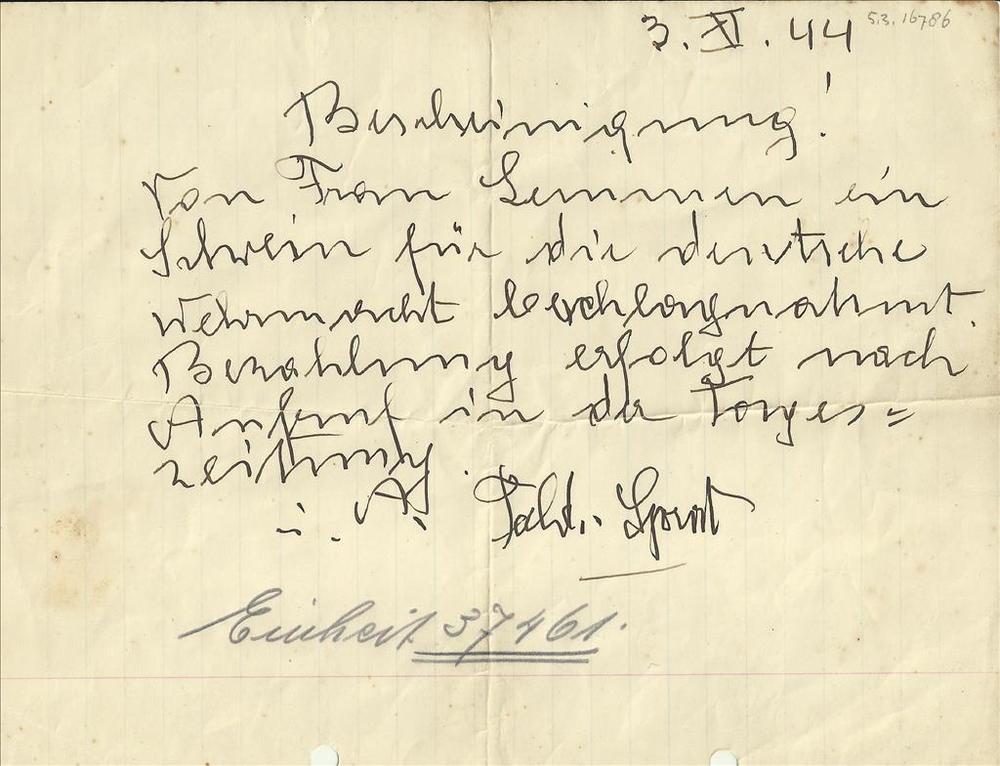 3. XI. 44 5.3.16786
Bescheinigung!
Von Frau Lemmen ein
Schwein für die deutsche
Wehrmacht beschlagnahmt.
Bezahlung erfolgt nach
Aufruf in der Tages=
zeitung.
i. A.
Einheit 37461.